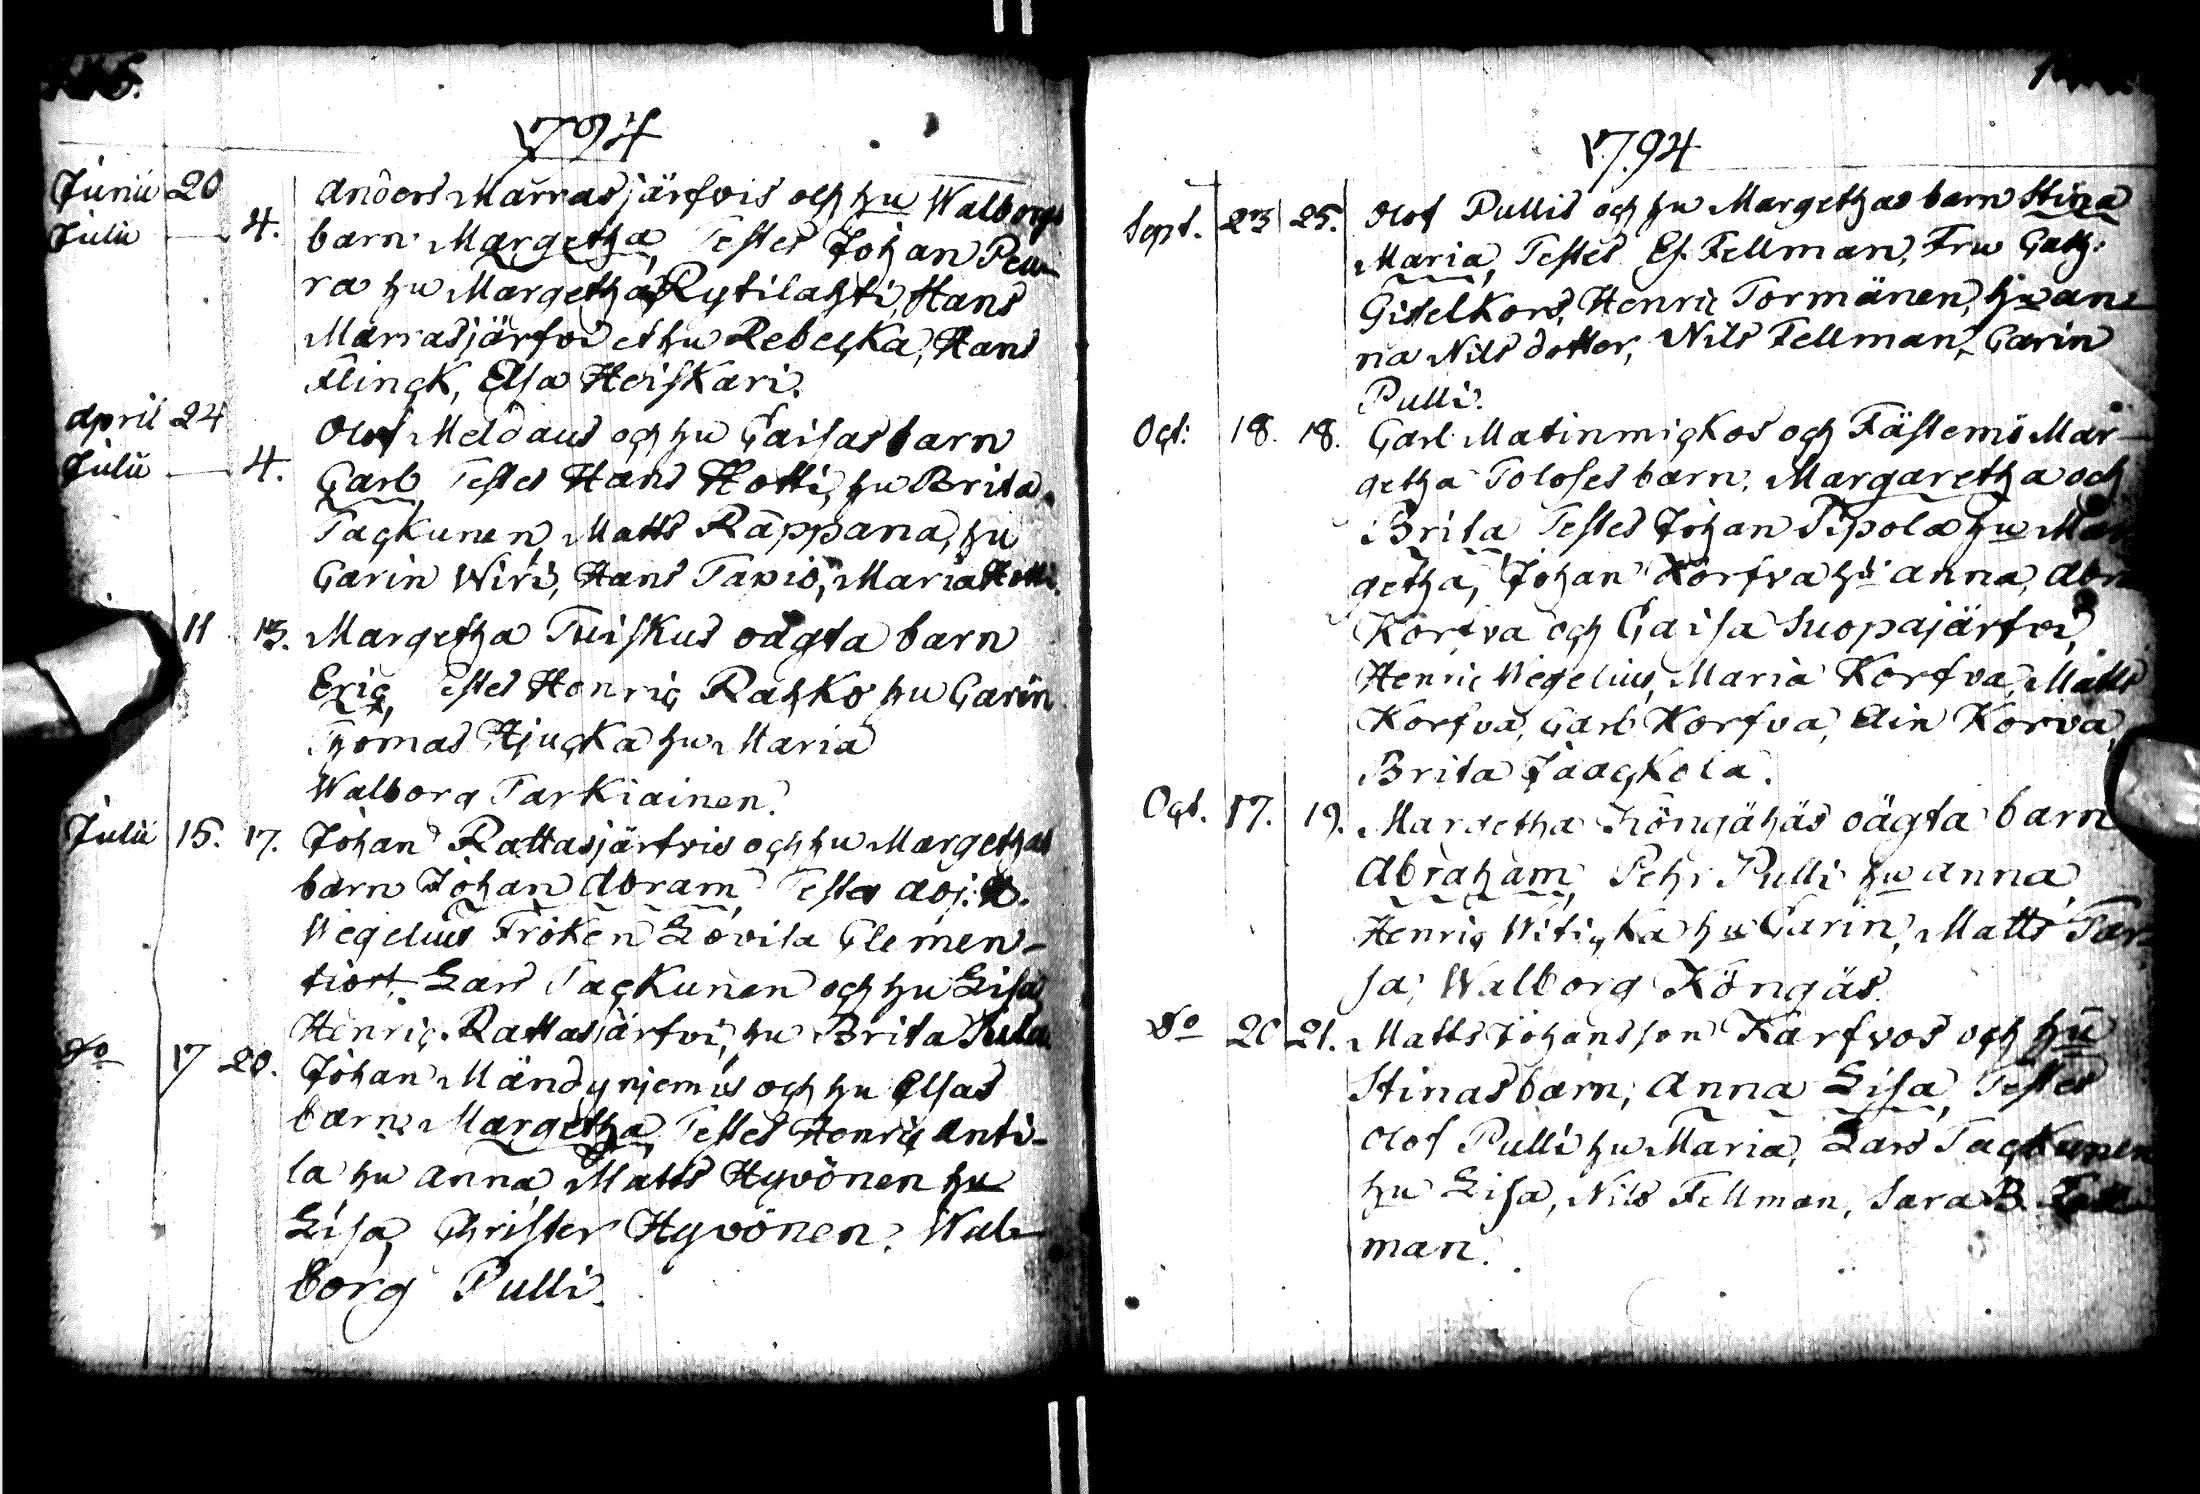 1794
Junii 20 Anders Marrasjärfvis och hu Walborgs
Julii — 4. barn Margetha, Testes Johan Peu-
ra hu Margetha Rytilahti, Hans
Marrasjärfvi et hu Rebecka, Hans
Flinck, Elsa Heiskari.
April 24 Olof Meldaus och hu Caisas barn
Julii — 4. Carl, Testes Hans Hotti, hu Brita
Tackunen, Matts Rappana, hu
Carin Wiri, Hans Tapio, Maria Hotti.
11 13. Margetha Tuiskus oägta barn
Eric, Testes Henric Rahko hu Carin
Thomas Hjucka hu Maria
Walborg Tarkiainen.
Julii 15. 17. Johan Rattasjärfvis och hu Margethas
barn Johan Abram, Testes Adj. H.
Wegelius Fröken Lovisa Clemen-
tiort. Lars Tackunen och hu Lisa,
Henric Rattasjärfvi, hu Brita
do 17 20. Johan Mändyniemis och hu Elsas
barn Margetha, Testes Henric Anti-
la hu Anna, Matts Hyvönen hu
Lisa, Christer Hyvönen, Wal-
borg Pulli.
1794
Sept. 23 25. Olof Pullis och hu Margethas barn Stina
Maria, Testes Es. Fellman, Fru Cath.
Giselkors, Henric Tormänen, hu An-
na Nils dotter, Nils Fellman, Carin
Pulli.
Oct: 18. 18. Carl Matinmickos och Fästemö Mar-
getha Toloses barn, Margaretha och
Brita Testes Johan Pipola hu Mar
getha, Johan Korfva hu Anna, Abr
Korfva och Caisa Suopajärfvi,
Henric Wegelius, Maria Korfva, Matts
Korfva, Carl Korfva, Elin Korva,
Brita Jaackola.
Oct. 17. 19. Margetha Köngähäs oägta barn
Abraham, Pehr Pulli hu Anna,
Henric Witicka hu Carin, Matts Tar-
sa, Walborg Köngäs.
do 20 21. Matts Johansson Karfvos och hu
Stinas barn, Anna Lisa, Testes
Olof Pulli hu Maria, Lars Tackunen
hu Lisa, Nils Fellman, Sara B. Fell-
man.